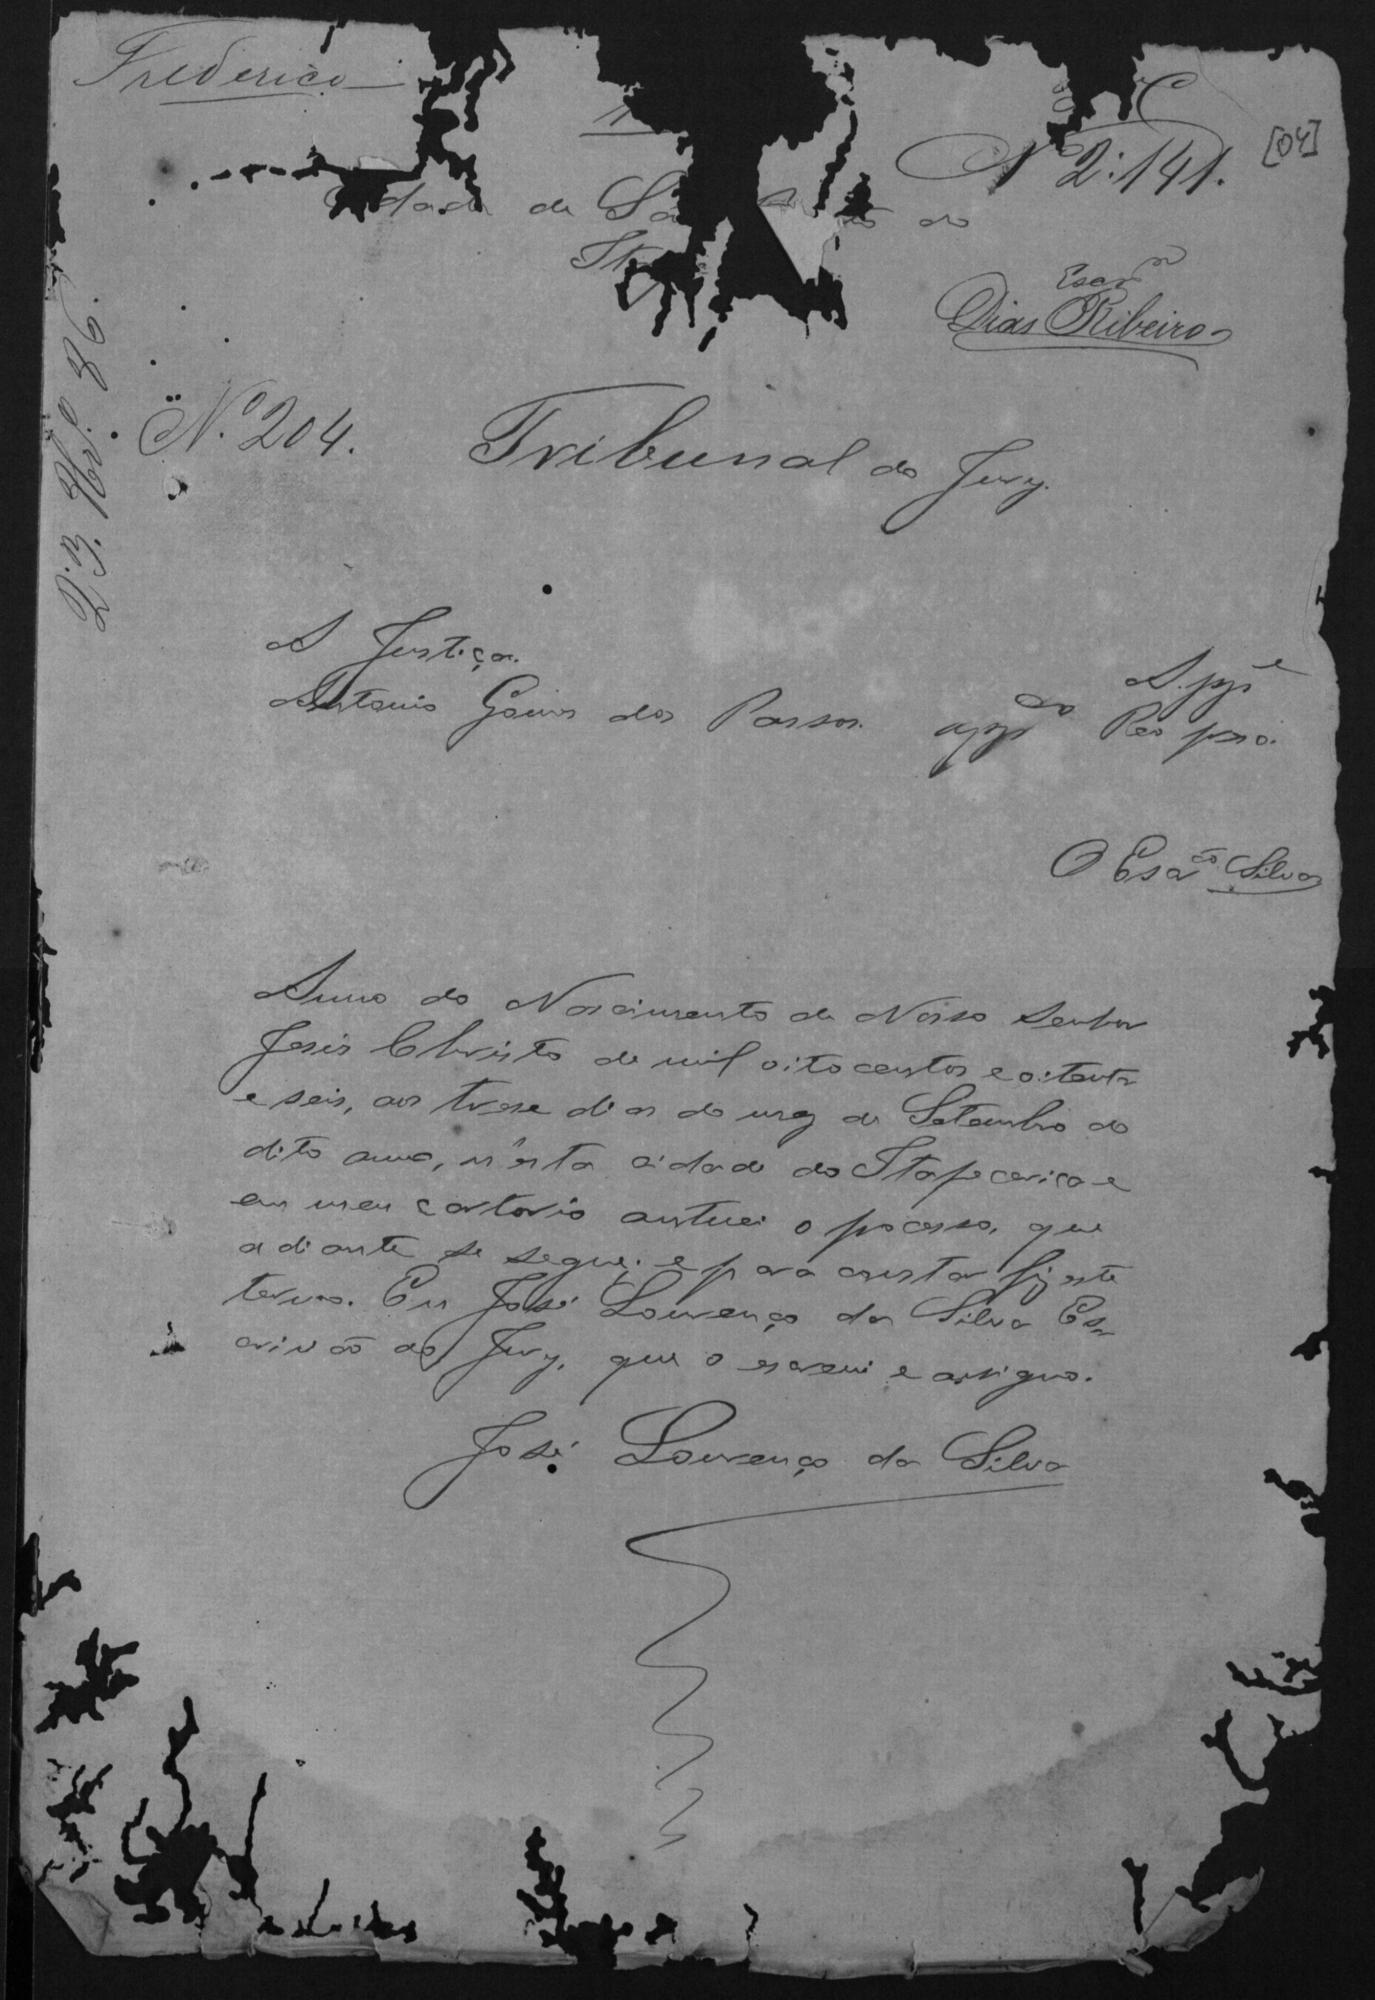 Frederico
Nº 2.141.
[04]
de
do
Escr.m
Dias Ribeiro
23. 9br.º 86.
N. 204.
Tribunal do Jury.
A Justiça. App.e
Antonio Gomes dos Passos. app.do Reo preso.
O Escr.ão Silva
Anno do Nascimento de Nosso Senhor
Jesus Christo de mil oitocentos e oitenta
e seis, aos trese dias do mez de Setembro do
dito anno, n'esta cidade do Itapecerica e
em meu cartorio autuei o pocesso, que
adiante se segue; e para constar fiz este
termo. Eu José Lourenço da Silva Es-
crivão do Jury, que o escrevi e assigno.
José Lourenço da Silva